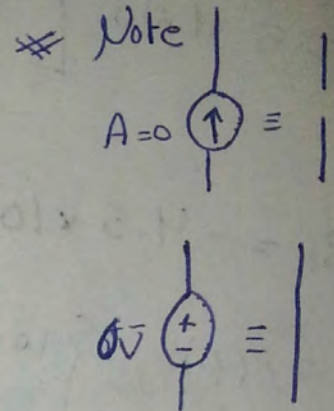 ※ Note
A=0 ↑ ≡
0V + - ≡